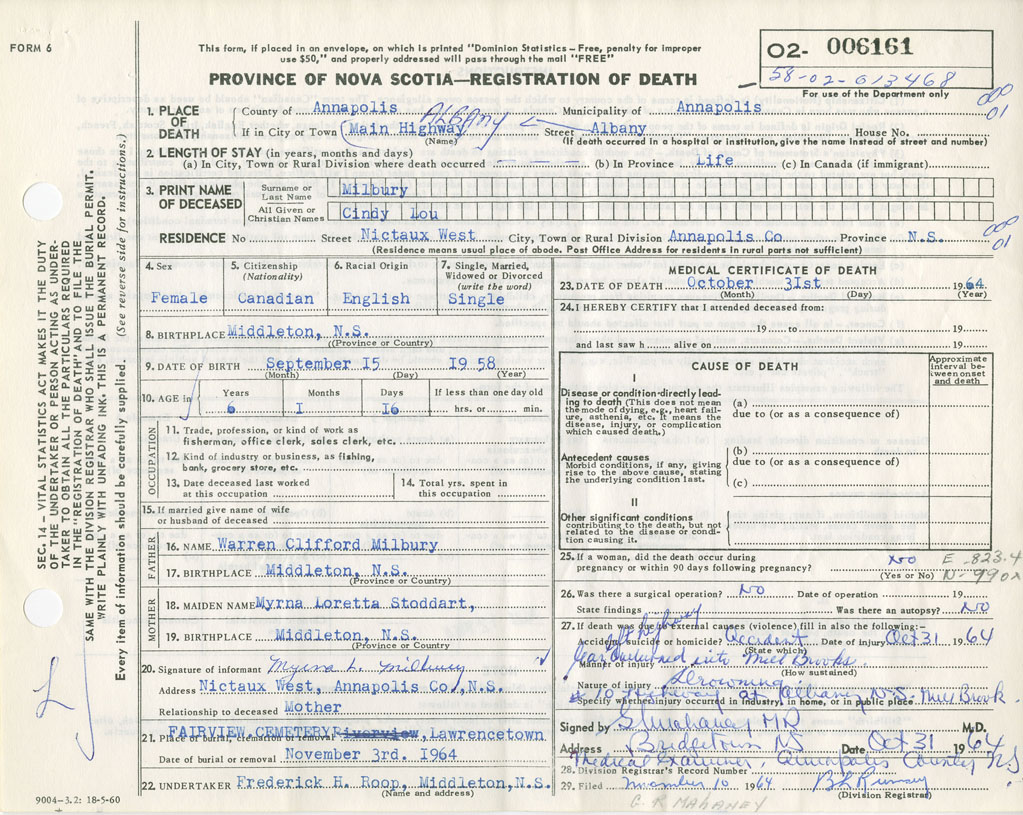 FORM 6
This form, if placed in an envelope, on which is printed "Dominion Statistics – Free, penalty for improper
use $50," and properly addressed will pass through the mail "FREE"
PROVINCE OF NOVA SCOTIA—REGISTRATION OF DEATH
O2- 006161
58-02-013468
For use of the Department only
1. PLACE OF DEATH
County of Annapolis Municipality of Annapolis
000
01
ALBANY
If in City or Town Main Highway Street Albany House No.
(Name) (If death occurred in a hospital or institution, give the name instead of street and number)
2. LENGTH OF STAY (in years, months and days)
(a) In City, Town or Rural Division where death occurred — — — (b) In Province Life (c) In Canada (if immigrant)
3. PRINT NAME OF DECEASED
Surname or Last Name Milbury
All Given or Christian Names Cindy Lou
RESIDENCE No Street Nictaux West City, Town or Rural Division Annapolis Co Province N.S.
000
01
(Residence means usual place of abode. Post Office Address for residents in rural parts not sufficient)
4. Sex
Female
5. Citizenship
(Nationality)
Canadian
6. Racial Origin
English
7. Single, Married,
Widowed or Divorced
(write the word)
Single
8. BIRTHPLACE Middleton, N.S.
(Province or Country)
9. DATE OF BIRTH September 15 1958
(Month) (Day) (Year)
10. AGE in Years Months Days If less than one day old
6 1 16 hrs. or min.
OCCUPATION
11. Trade, profession, or kind of work as
fisherman, office clerk, sales clerk, etc.
12. Kind of industry or business, as fishing,
bank, grocery store, etc.
13. Date deceased last worked
at this occupation
14. Total yrs. spent in
this occupation
15. If married give name of wife
or husband of deceased
FATHER
16. NAME Warren Clifford Milbury
17. BIRTHPLACE Middleton, N.S.
(Province or Country)
MOTHER
18. MAIDEN NAME Myrna Loretta Stoddart,
19. BIRTHPLACE Middleton, N.S.
(Province or Country)
20. Signature of informant Myrna L. Milbury
Address Nictaux West, Annapolis Co., N.S.
Relationship to deceased Mother
FAIRVIEW CEMETERY Riverview, Lawrencetown
21. Place of burial, cremation or removal
Date of burial or removal November 3rd. 1964
22. UNDERTAKER Frederick H. Roop, Middleton, N.S.
(Name and address)
9004-3.2: 18-5-60
MEDICAL CERTIFICATE OF DEATH
23. DATE OF DEATH October 31st 1964
(Month) (Day) (Year)
24. I HEREBY CERTIFY that I attended deceased from:
19 to 19
and last saw h alive on 19
CAUSE OF DEATH
Approximate
interval be-
tween onset
and death
I
Disease or condition directly lead-
ing to death (This does not mean
the mode of dying, e.g., heart fail-
ure, asthenia, etc. It means the
disease, injury, or complication
which caused death.)
(a)
due to (or as a consequence of)
Antecedent causes
Morbid conditions, if any, giving
rise to the above cause, stating
the underlying condition last.
(b)
due to (or as a consequence of)
(c)
II
Other significant conditions
contributing to the death, but not
related to the disease or condi-
tion causing it
25. If a woman, did the death occur during
pregnancy or within 90 days following pregnancy? No
(Yes or No)
E-823.4
N-990X
26. Was there a surgical operation? No Date of operation 19
State findings Was there an autopsy? No
27. If death was due to external causes (violence) fill in also the following:—
left highway
Accident, suicide or homicide? Accident Date of injury Oct 31 1964
(State which)
Manner of injury Car overturned into Mill Brook.
(How sustained)
Nature of injury Drowning
Specify whether injury occurred in industry, in home, or in public place
# 10 Highway at Albany N.S. Mill Brook
Signed by G K Mahaney MD M.D.
Address Bridgetown NS Date Oct 31 1964
Medical Examiner, Annapolis County NS
28. Division Registrar's Record Number
29. Filed November 10 1964
(Division Registrar)
G. K MAHANEY
SEC. 14 – VITAL STATISTICS ACT MAKES IT THE DUTY
OF THE UNDERTAKER OR PERSON ACTING AS UNDER-
TAKER TO OBTAIN ALL THE PARTICULARS REQUIRED
IN THE "REGISTRATION OF DEATH" AND TO FILE THE
SAME WITH THE DIVISION REGISTRAR WHO SHALL ISSUE THE BURIAL PERMIT.
WRITE PLAINLY WITH UNFADING INK. THIS IS A PERMANENT RECORD.
Every item of information should be carefully supplied. (See reverse side for instructions.)